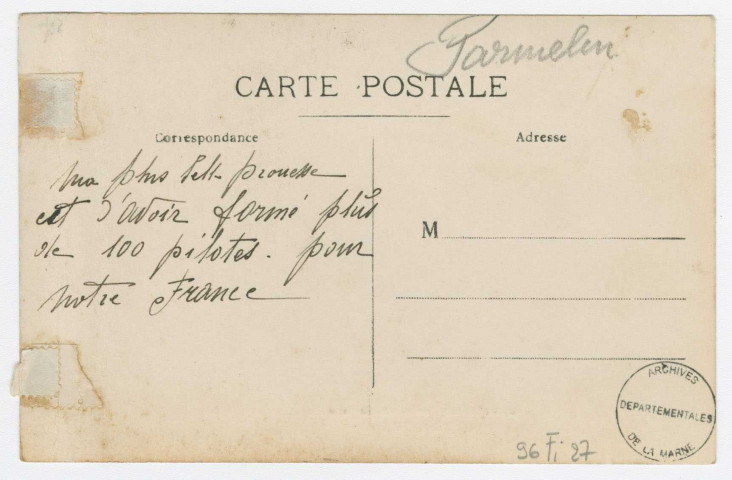 Parmelin
CARTE POSTALE
Correspondance
Adresse
Ma plus belle prouesse
est d'avoir formé plus
de 100 pilotes. pour
notre France
M
ARCHIVES
DEPARTEMENTALES
DE LA MARNE
96 Fi 27